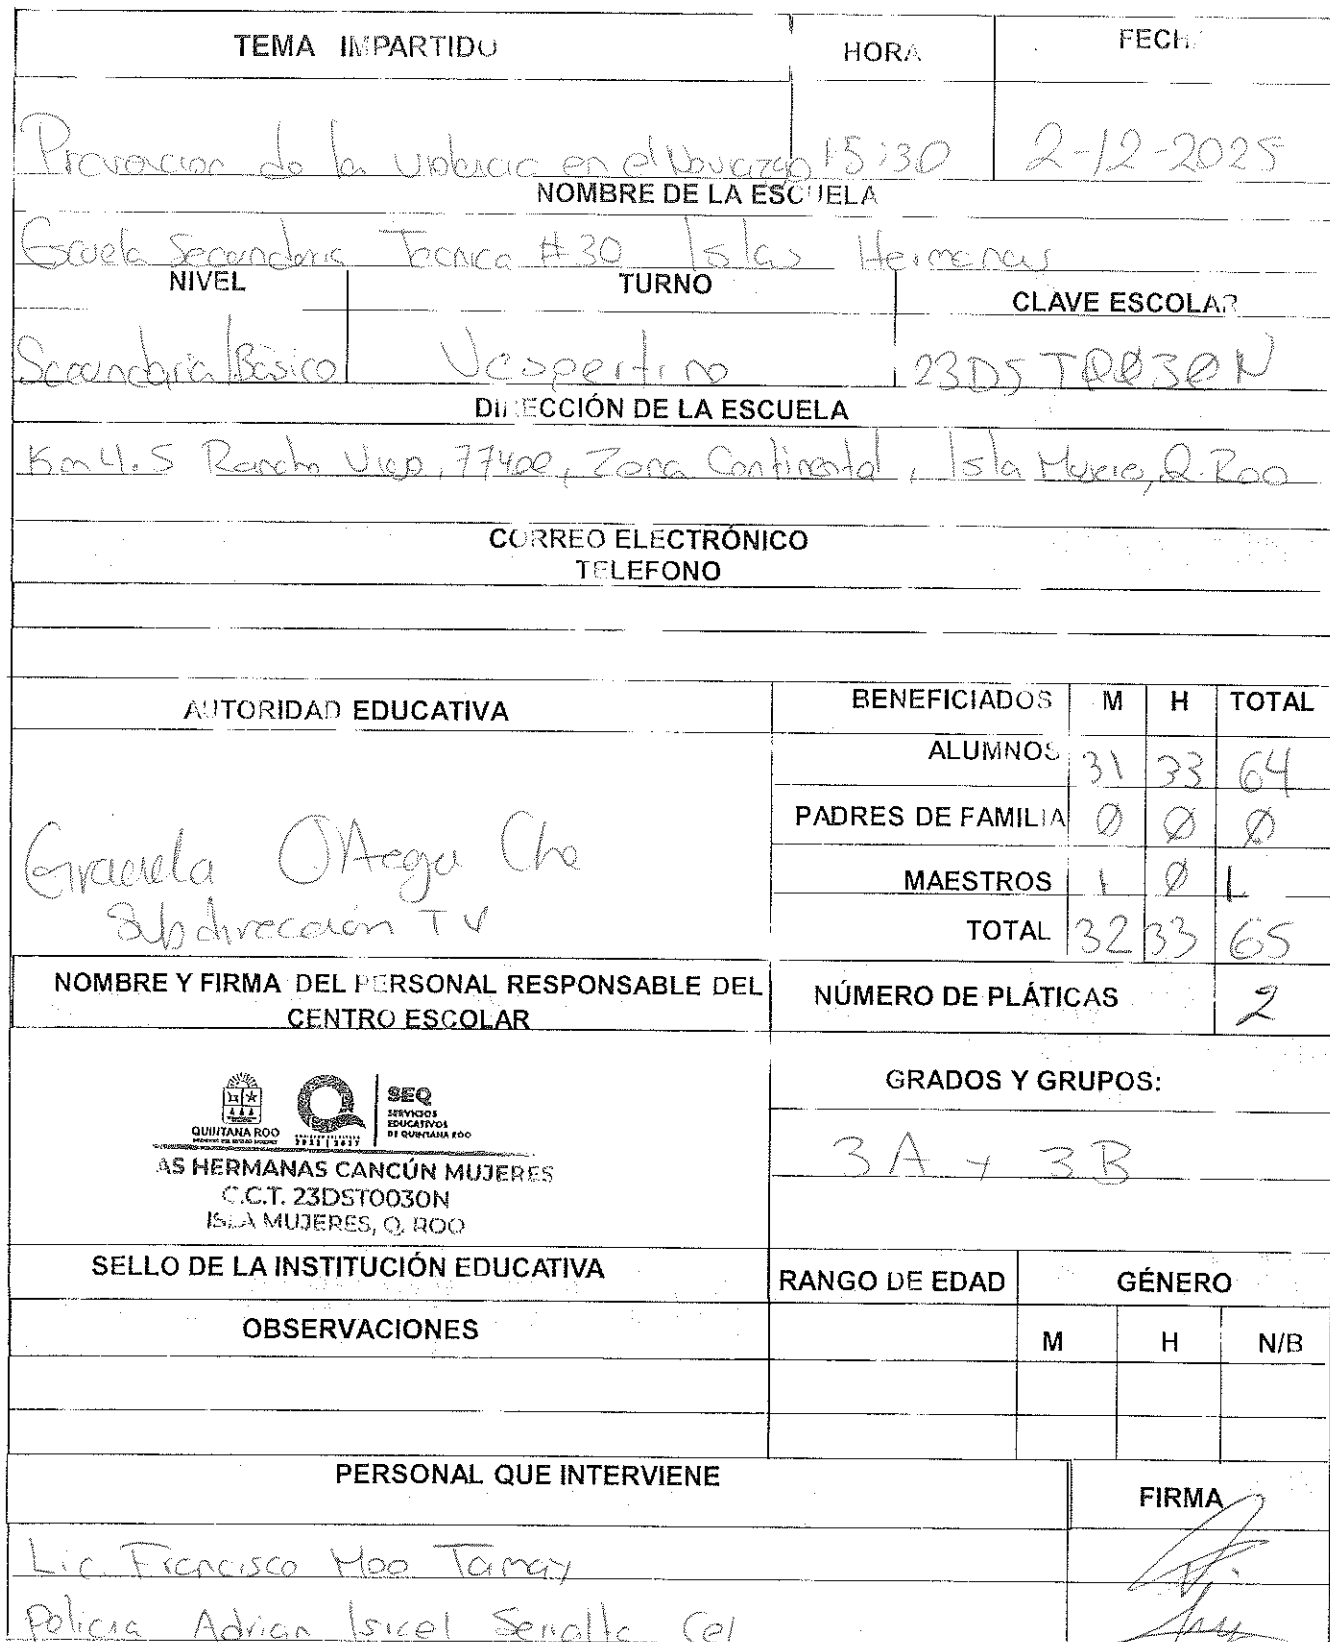 TEMA IMPARTIDO HORA FECHA
Prevencion de la violencia en el Noviazgo 15:30 2-12-2025
NOMBRE DE LA ESCUELA
Escuela Secundaria Tecnica #30 Islas Hermanas
NIVEL TURNO CLAVE ESCOLAR
Secundaria/Básico Vespertino 23DST0030N
DIRECCIÓN DE LA ESCUELA
Km 4.5 Rancho Viejo, 77400, Zona Continental, Isla Mujeres, Q. Roo
CORREO ELECTRÓNICO
TELEFONO
AUTORIDAD EDUCATIVA BENEFICIADOS M H TOTAL
ALUMNOS 31 33 64
PADRES DE FAMILIA 0 0 0
Graciela Ortega Che
MAESTROS 1 0 1
Subdirección TV
TOTAL 32 33 65
NOMBRE Y FIRMA DEL PERSONAL RESPONSABLE DEL CENTRO ESCOLAR
NÚMERO DE PLÁTICAS 2
GRADOS Y GRUPOS:
3A y 3B
QUINTANA ROO
2022 | 2027
SEQ
SERVICIOS
EDUCATIVOS
DE QUINTANA ROO
AS HERMANAS CANCÚN MUJERES
C.C.T. 23DST0030N
ISLA MUJERES, Q. ROO
SELLO DE LA INSTITUCIÓN EDUCATIVA RANGO DE EDAD GÉNERO
OBSERVACIONES M H N/B
PERSONAL QUE INTERVIENE FIRMA
Lic. Francisco Moo Tamay
Policia Adrian Isicel Cel